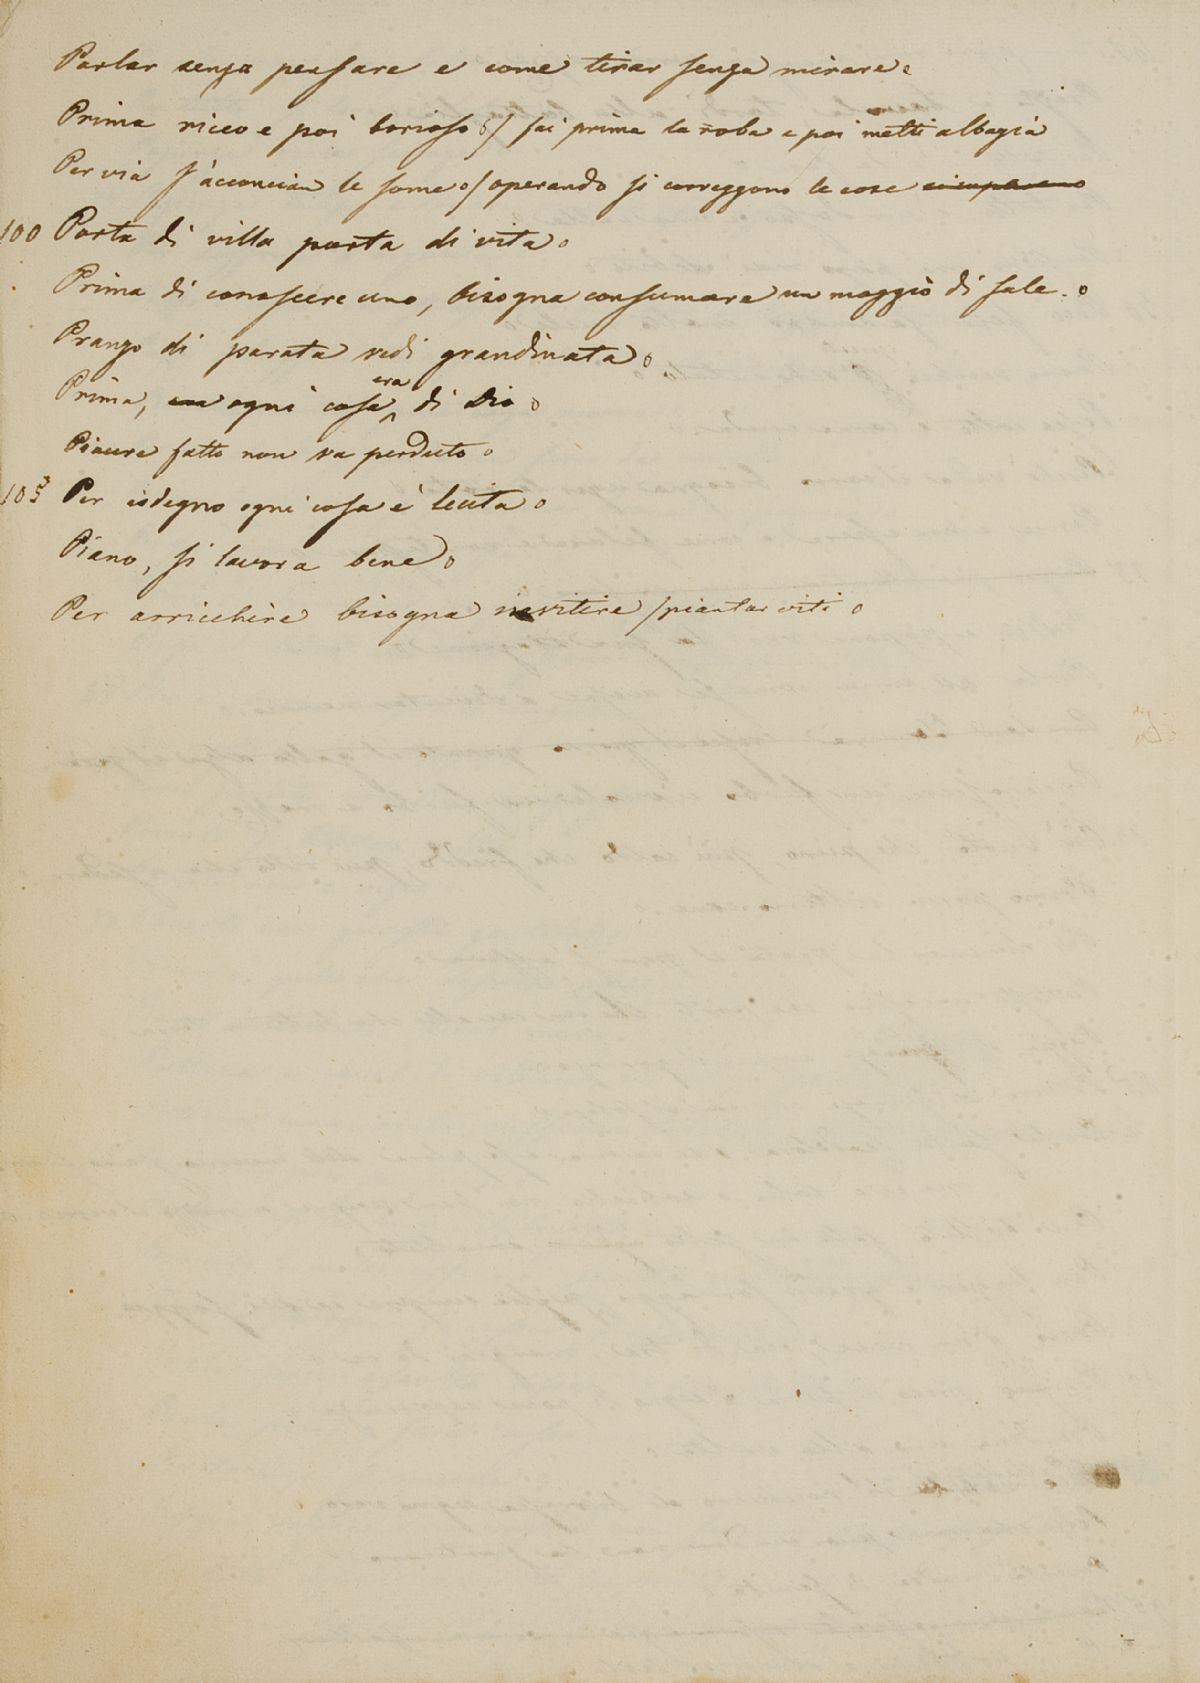 Parlar senza pensare e come tirar senza mirare.
Prima ricco e poi borioso / fai prima la roba e poi metti albagia
Per via s'acconcian le some / operando si correggono le cose
100 Porta di villa porta di vita
Prima di conoscere uno, bisogna consumare un moggio di sale.
Pranzo di parata vedi grandinata
Prima, ogni cosa era di Dio
Piacere fatto non va perduto
105 Per isdegno ogni cosa è lecita
Piano, si lavora bene
Per arricchire bisogna invitire / piantar viti